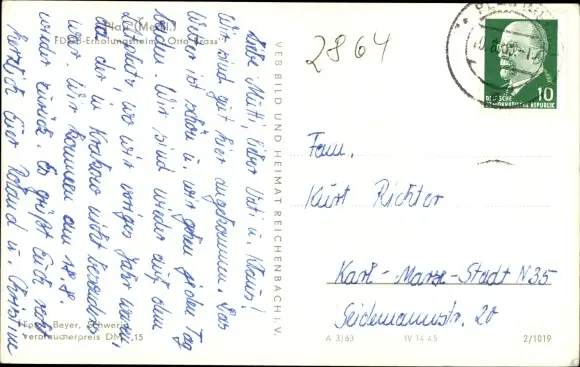 Plau (Meckl.)
FDGB-Erholungsheim "Otto Krass"
Liebe Mutti, lieber Vati u. Klaus!
Wir sind gut hier angekommen. Das
Wetter ist schön u. wir gehen jeden Tag
baden. Wir sind wieder auf dem
Zeltplatz, wo wir voriges Jahr waren,
da es in Krakow nicht besonders
war. Wir kommen am 18.8.
wieder zurück. Es grüßt Euch recht
herzlich Eure Roland u. Christine
Foto: Beyer, Schwerin
Verbraucherpreis DM -,15
VEB BILD UND HEIMAT REICHENBACH I. V.
2864
10
DEUTSCHE
DEMOKRATISCHE REPUBLIK
Fam.
Kurt Richter
Karl-Marx-Stadt N 35
Seidemannstr. 20
A 3/63 IV 14 45 2/1019